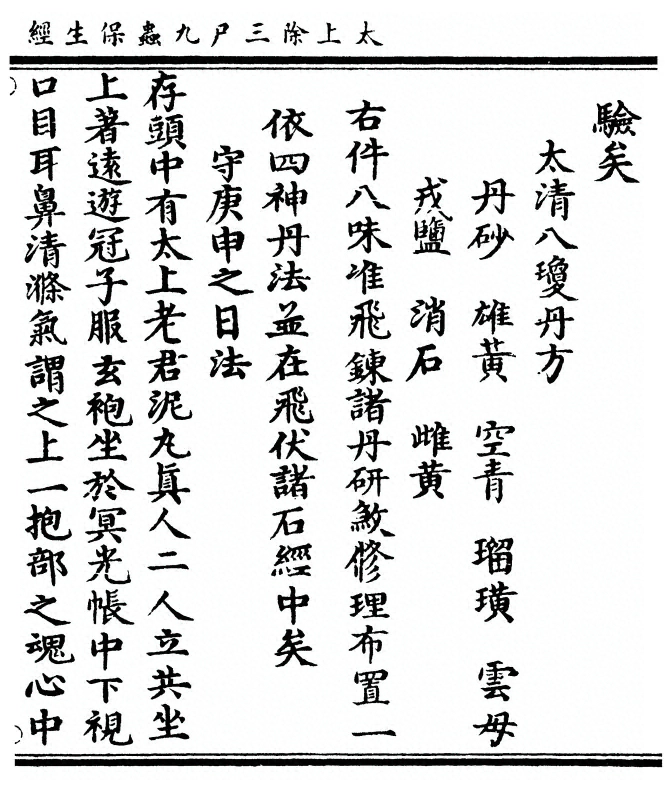 太上除三尸九蟲保生經
驗矣
太清八瓊丹方
丹砂 雄黃 空青 瑠璜 雲母
戎鹽 消石 雌黃
右件八味准飛鍊諸丹研煞修理布置一
依四神丹法並在飛伏諸石經中矣
守庚申之日法
存頭中有太上老君泥丸真人二人立共坐
上著遠遊冠子服玄袍坐於冥光帳中下視
口目耳鼻清滌氣謂之上一抱部之魂心中